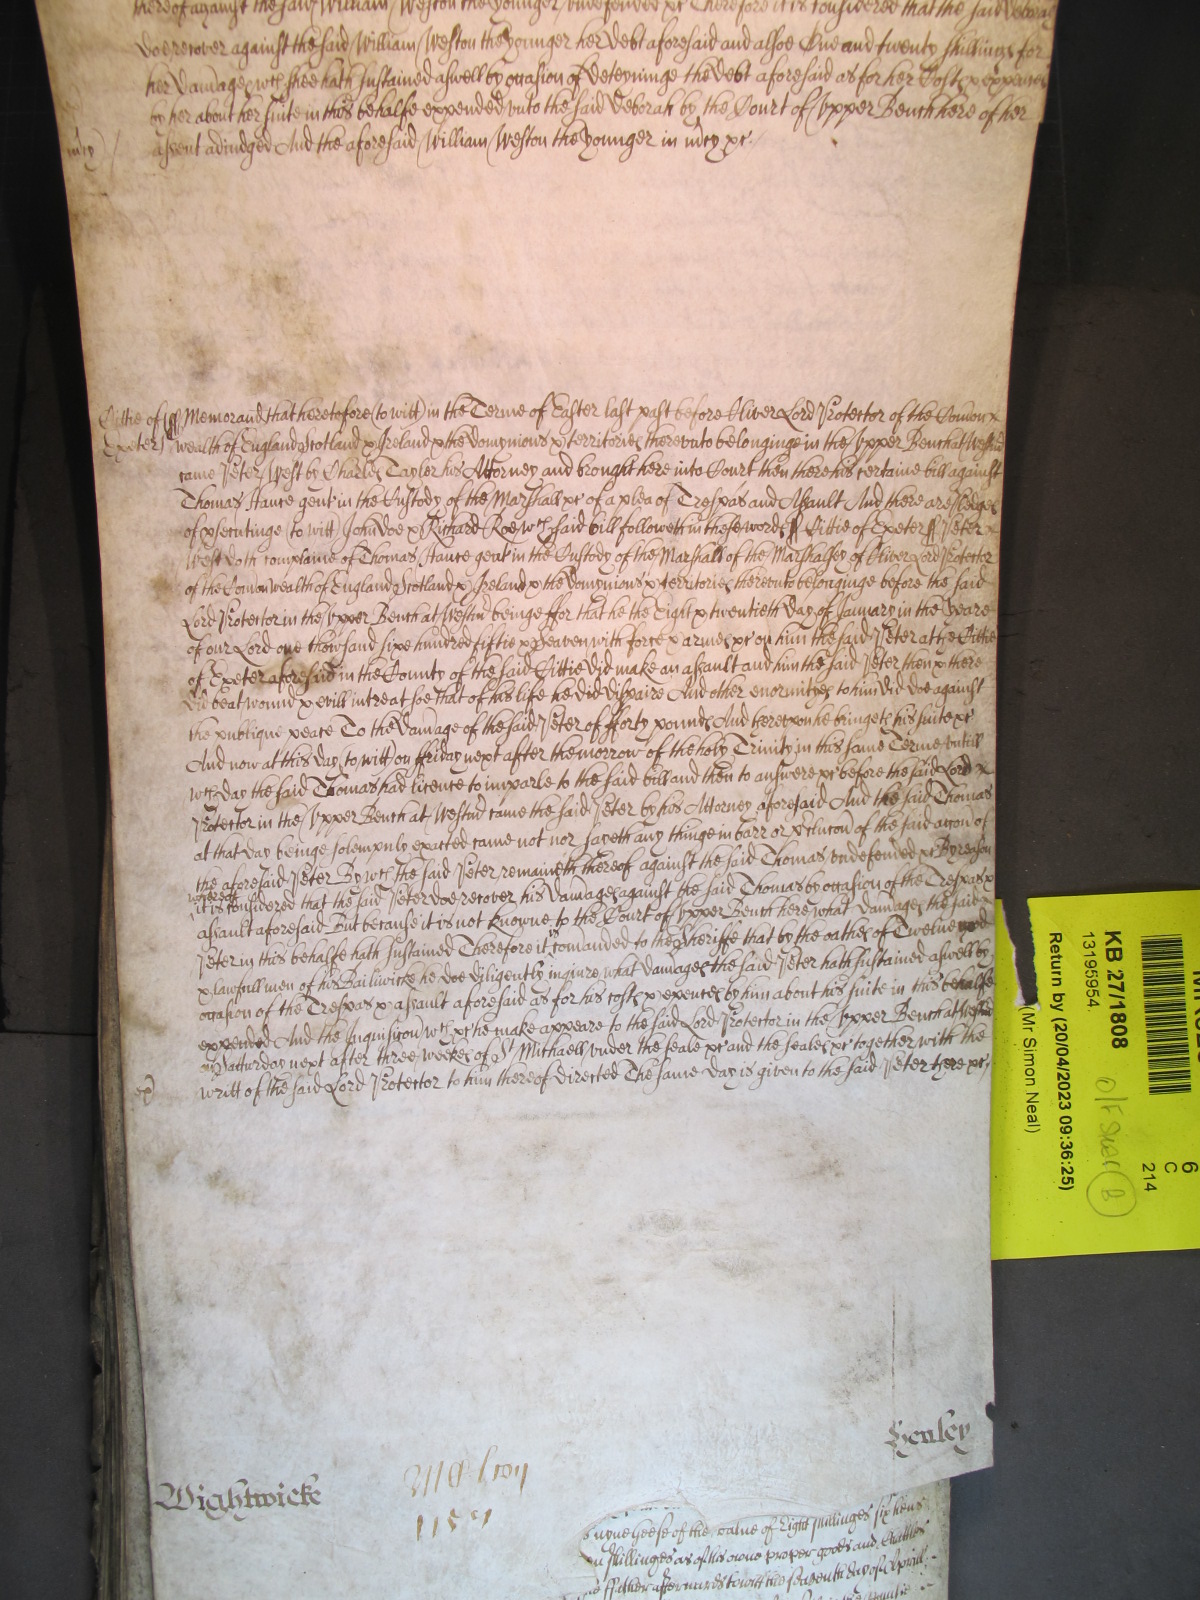 thereof against the said William Weston the younger undefended &c Therefore it is considered that the said Deborah
doe recover against the said William Weston the younger her debt aforesaid and alsoe One and twenty shillings for
her damages wch shee hath sustained aswell by occasion of deteyninge the debt aforesaid as for her Costs & expences
by her about her suite in this behalfe expended unto the said Deborah by the Court of Upper Bench here of her
assent adiudged And the aforesaid William Weston the younger in mcy &c
mcy
Cittie of Exeter ss Memorand that heretofore (to witt) in the Terme of Easter last past before Oliver Lord Protector of the Common
wealth of England Scotland & Ireland & the dominions & territories thereunto belonginge in the Upper Bench at Westm
came Peter West by Charles Tayler his Attorney and brought here into Court then there his certaine bill against
Thomas gent in the Custody of the Marshall &c of a plea of Trespas and Assault And there are pledges
of psecutinge to witt John Doe & Richard Roe wch said bill followeth in these words ss Cittie of Exeter ss Peter
West doth complaine of Thomas gent in the Custody of the Marshall of the Marshalsey of Oliver Lord Protector
of the Comonwealth of England Scotland & Ireland & the dominions & territories thereunto belonginge before the said
Lord Protector in the Upper Bench at Westm beinge ffor that he the Eight & twentieth day of January in the yeare
of our Lord one thowsand sixe hundred fiftie & seaven with force & armes &c on him the said Peter at the Cittie
of Exeter aforesaid in the County of the said Cittie did make an assault and him the said Peter then & there
did beat wound & evill intreat soe that of his life he did dispaire And other enormityes to him did doe against
the publique peace To the damage of the said Peter of fforty pounds And thereupon he bringeth his suite &c
And now at this day (to witt) on ffriday next after the morrow of the holy Trinity in this same Terme untill
wch day the said Thomas had licence to imparle to the said bill and then to answere &c before the said Lord
Protector in the Upper Bench at Westm came the said Peter by his Attorney aforesaid And the said Thomas
at that day beinge solempnly exacted came not nor sayeth any thinge in barr or pclucon of the said accon of
the aforesaid Peter By wch the said Peter remaineth thereof against the said Thomas undefended &c By reason
whereof it is considered that the said Peter doe recover his damages against the said Thomas by occasion of the Trespas &
assault aforesaid But because it is not knowne to the Court of Upper Bench here what damages the said
Peter in this behalfe hath sustained Therefore it is comanded to the Sheriffe that by the oathes of Twelve good
& lawfull men of his Bailiwicke he doe diligently inquire what damages the said Peter hath sustained aswell by
occasion of the Trespas & assault aforesaid as for his costs & expences by him about his suite in this behalfe
expended And the Inquisicon wch &c he make appeare to the said Lord Protector in the Upper Bench at Westm
on Satturday next after three weekes of St Michaell under the seale &c and the seales &c together with the
writt of the said Lord Protector to him thereof directed The same day is given to the said Peter there &c
Henley
Wightwicke
KB 27/1808
13195954
Return by (20/04/2023 09:36:25)
(Mr Simon Neal)
6
C
214
B
of the value of Eight shillinges six hens
shillinges as of his owne proper goods and Cattles
afterwards to witt the seaventh day of Aprill